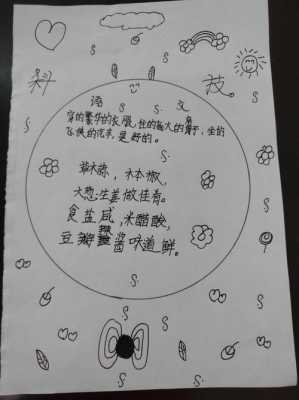 科 技
语 文
穿的繁华的衣服,住的高大的房子,坐的
飞快的汽车,是好的。
辣木椒,
大葱生姜做佳肴。
食盐咸,米醋酸,
豆瓣酱味道鲜。